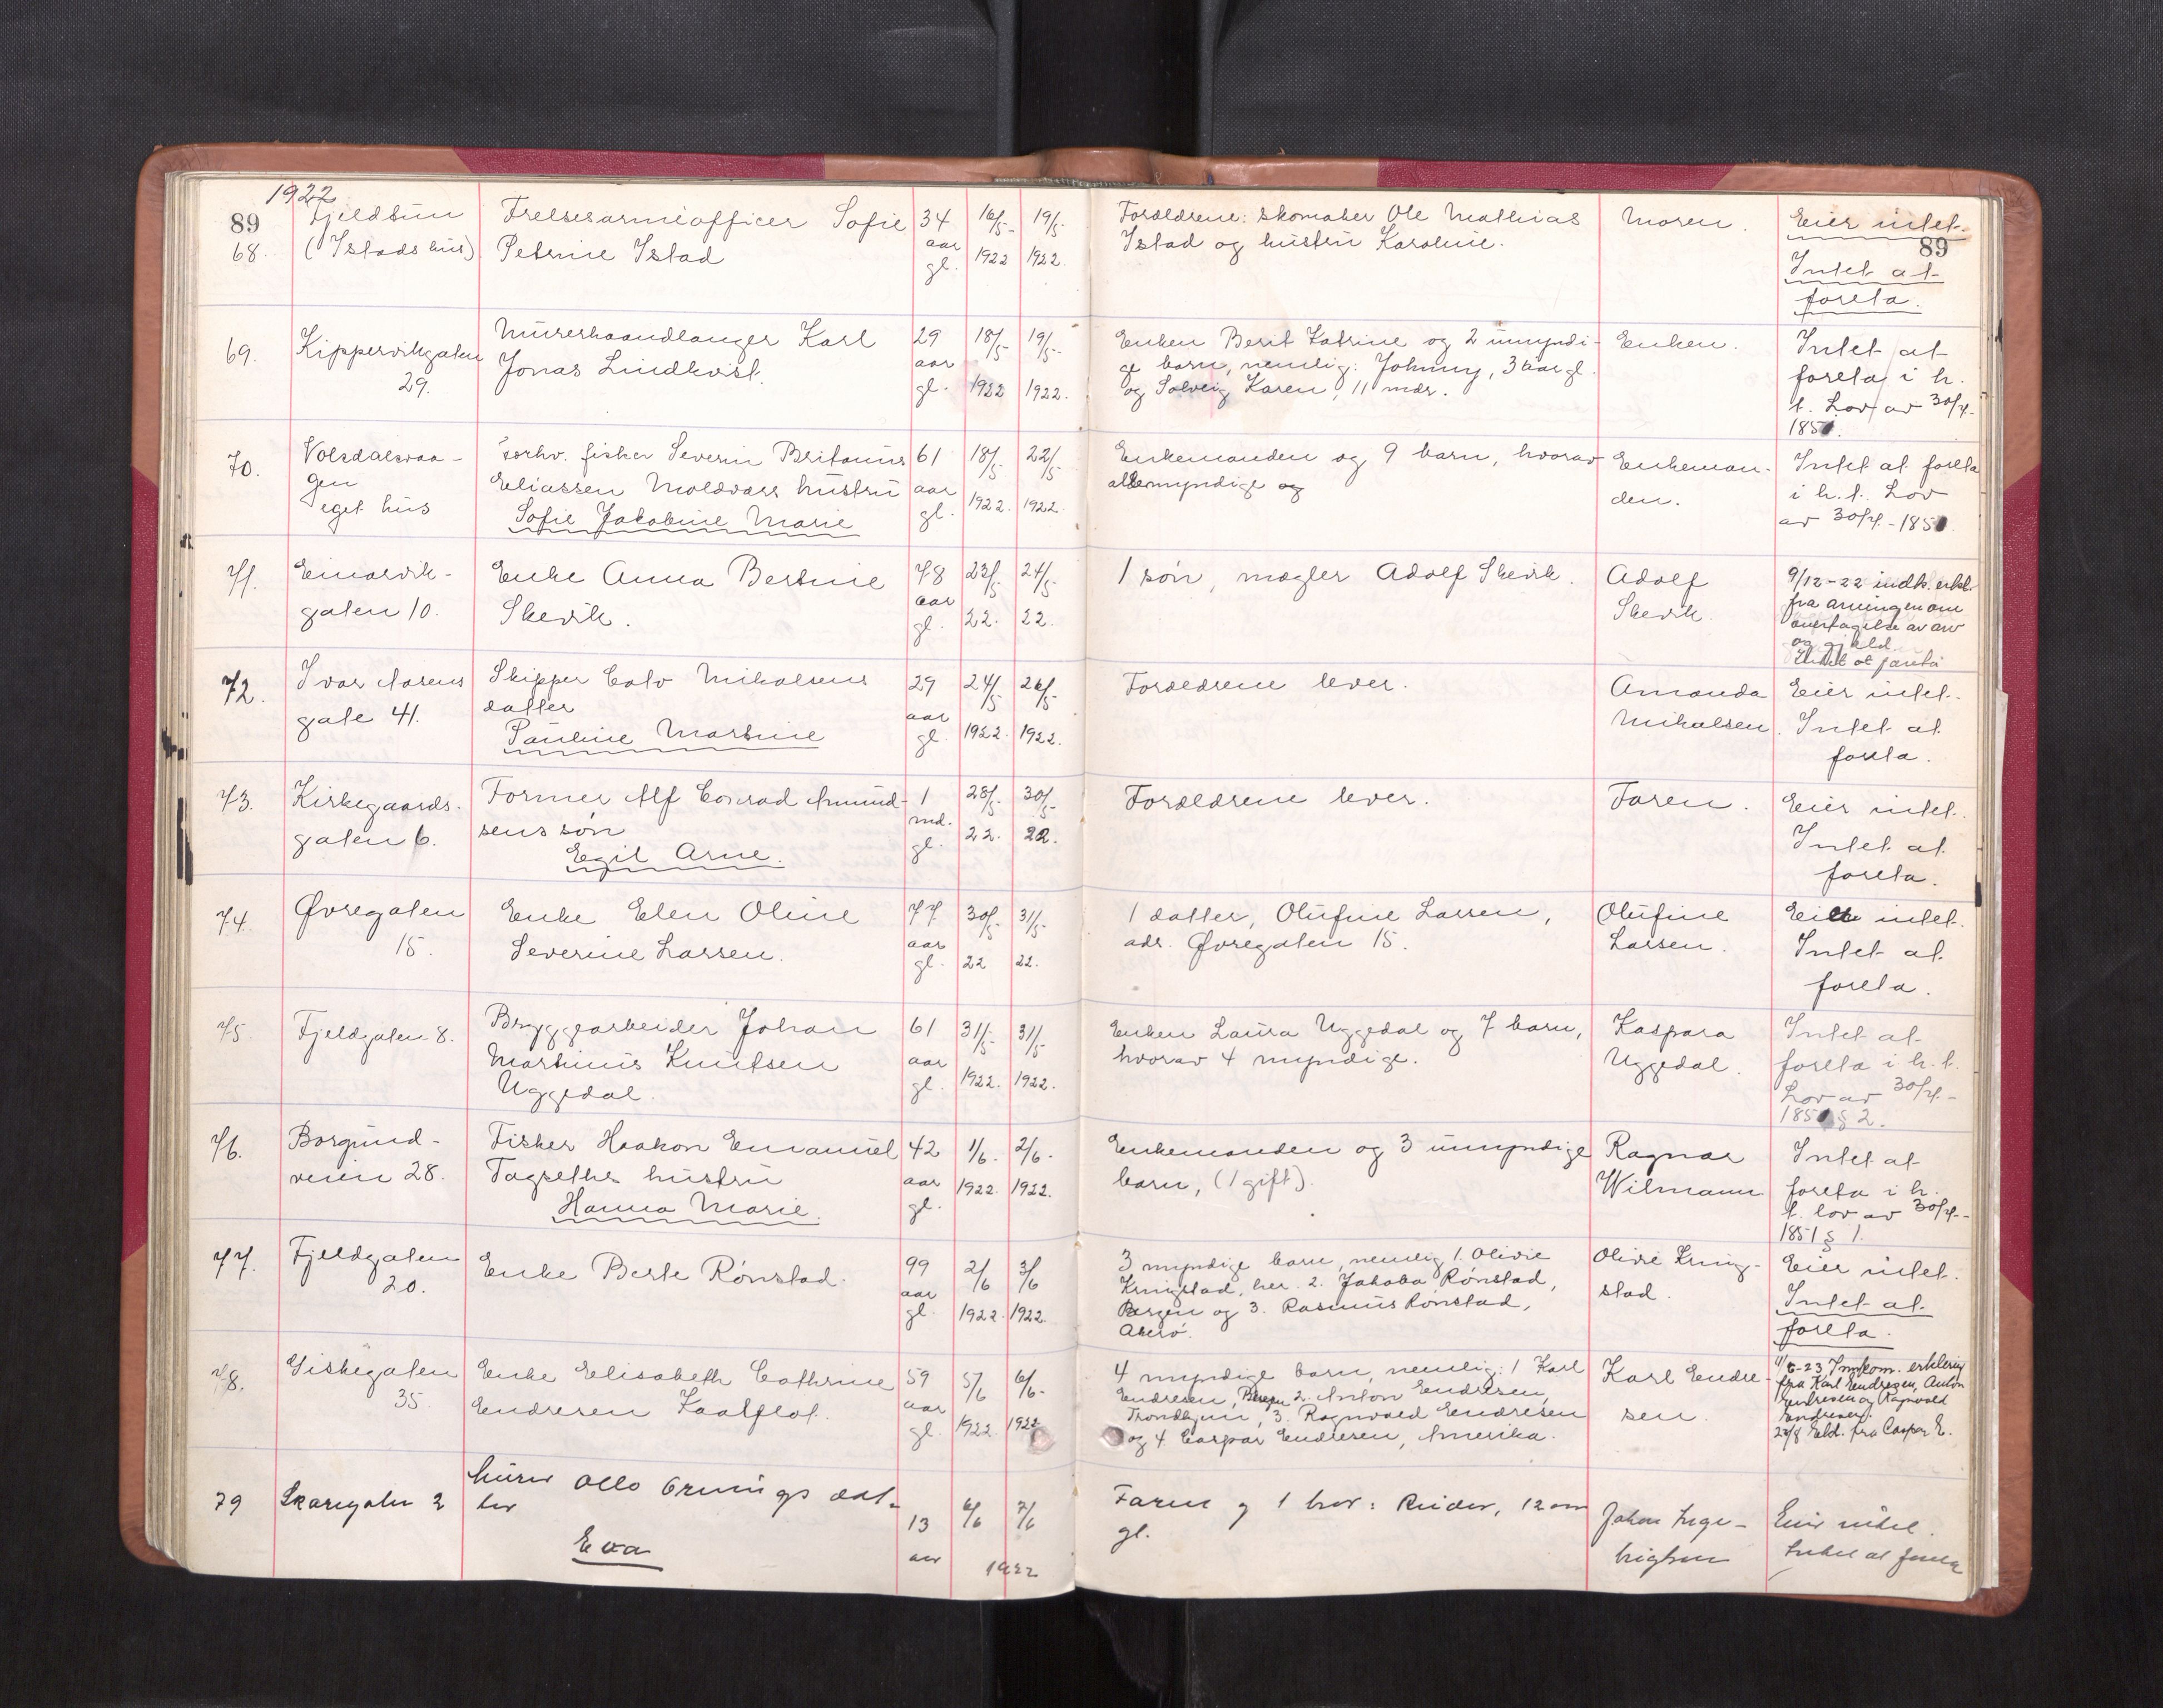 1922
89
68.
Fjeldtun
(Istads hus)
Frelsesarméofficer Sofie
Petrine Istad
34
aar
gl.
16/5-
1922
19/5-
1922.
Forældrene: Skomaker Ole Mathias
Istad og hustru Karoline.
Moren.
Eier intet.
89
Intet at
foreta.
69.
Kippervikgaten
29.
Murerhaandlanger Karl
Jonas Lindkvist.
29
aar
gl.
18/5-
1922
19/5-
1922.
Enken Berit Katrine og 2 umyndi-
ge barn, nemlig: Johnny, 3 aar gl.
og Solveig Karen, 11 mdr.
Enken.
Intet at
foreta i h.
t. Lov av 30/7-
1851.
70.
Volsdalsvaa-
gen
eget hus
forhv. fisker Severin Britanus
Eliassen Moldvær hustru
Sofie Jakobine Marie
61
aar
gl.
18/5
1922.
22/5
1922.
Enkemanden og 9 barn, hvorav
alle myndige og
Enkeman-
den.
Intet at foreta
i h. t. Lov
av 30/7.-1851.
71.
Einarvik-
gaten 10.
Enke Anna Bertine
Skevik.
78
aar
gl.
23/5-
22.
24/5-
22.
1 søn, mægler Adolf Skevik.
Adolf
Skevik.
9/12-22 indk. erkl.
fra arvingen om
overtagelse av arv
og gjæld.
Intet at foreta
72.
Ivar Aasens
gate 41.
Skipper Calv Mikalsens
datter
Pauline Martine
29
aar
gl.
24/5-
1922.
26/5-
1922.
Forældrene lever.
Amanda
Mikalsen.
Eier intet.
Intet at
foreta.
73.
Kirkegaards-
gaten 6.
Former Alf Conrad Amund-
sens søn
Egil Arne.
1
md.
gl.
28/5-
22.
30/5-
22.
Forældrene lever.
Faren.
Eier intet.
Intet at
foreta.
74.
Øvregaten
15.
Enke Elen Oline
Severine Larsen.
77
aar
gl.
30/5-
22
31/5-
22.
1 datter, Olufine Larsen,
adr. Øvregaten 15.
Olufine
Larsen.
Eier intet.
Intet at
foreta.
75.
Fjeldgaten 8.
Bryggearbeider Johan
Martinus Knutsen
Uggedal.
61
aar
gl.
31/5-
1922.
31/5-
1922.
Enken Laura Uggedal og 7 barn,
hvorav 4 myndige.
Kaspara
Uggedal.
Intet at
foreta i h. t.
Lov av 30/7.-
1851 § 2.
76.
Borgund-
veien 28.
Fisker Haakon Emanuel
Tagseths hustru
Hanna Marie.
42
aar
gl.
1/6.
1922.
2/6-
1922.
Enkemanden og 3 umyndige
barn, (1 gift).
Ragnar
Wilmann
Intet at
foreta i h.
t. lov av 30/7.-
1851 § 1.
77.
Fjeldgaten
20.
Enke Berte Rønstad.
99
aar
gl.
2/6
1922.
3/6
1922.
3 myndige barn, nemlig 1. Olivie
Kringstad, her. 2. Jakoba Rønstad,
Bergen og 3. Rasmus Rønstad,
Akerø.
Olivie Kring-
stad.
Eier intet.
Intet at
foreta.
78.
Giskegaten
35.
Enke Elisabeth Cathrine
Endresen Kaalflot.
59
aar
gl.
5/6
1922.
6/6-
1922
4 myndige barn, nemlig: 1 Karl
Endresen, Bergen 2. Anton Endresen,
Trondhjem, 3. Ragnvald Endresen
og 4 Caspar Endresen, Amerika.
Karl Endre-
sen.
1/6-23 Innkom. erklering
fra Karl Endresen, Anton
Endresen og Ragnvald
Endresen.
29/8 Erkl. fra Caspar E.
79
Skaregaten 2
Murer Otto Grnings dat-
ter
Eva
13
aar
6/6
7/6
1922
Faren og 1 bror: Reidar, 12 aar
gl.
Johan Inge-
brigtsen
Eier intet.
Intet at foreta